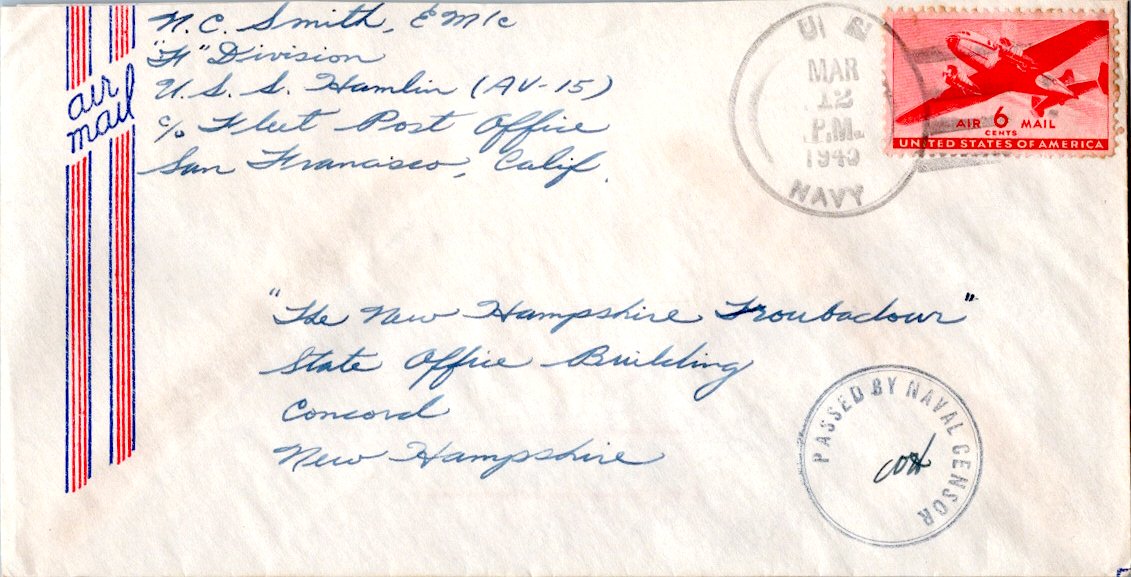 N. C. Smith, EM1c
"F" Division
U. S. S. Hamlin (AV-15)
c/o Fleet Post Office
San Francisco, Calif.
air
mail
U S
MAR
12
P.M.
1945
NAVY
AIR 6 MAIL
CENTS
UNITED STATES OF AMERICA
"The New Hampshire Troubadour"
State Office Building
Concord
New Hampshire
PASSED BY NAVAL CENSOR